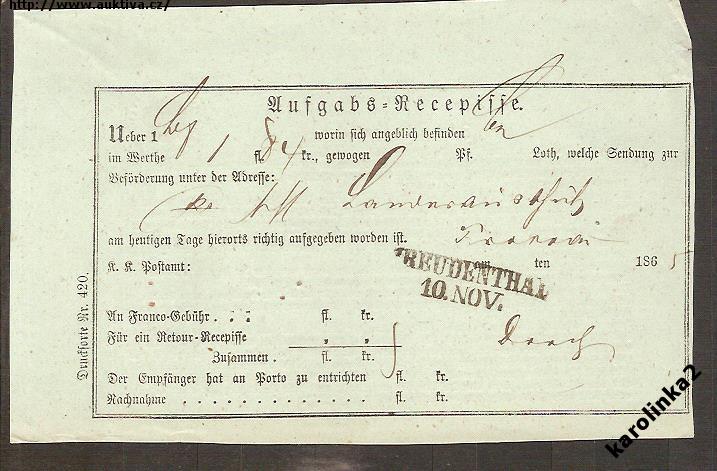 http://www.auktiva.cz/
Aufgabs-Recepisse.
Ueber 1 worin sich angeblich befinden
im Werthe 1 fl. 84 kr., gewogen Pf. Loth, welche Sendung zur
Beförderung unter der Adresse:
Landesausschuß
am heutigen Tage hierorts richtig aufgegeben worden ist. Troppau
K. K. Postamt: am ten 1865
FREUDENTHAL
10. NOV.
An Franco-Gebühr . . . fl. kr.
Für ein Retour-Recepisse " "
Zusammen . fl. kr.
Der Empfänger hat an Porto zu entrichten fl. kr.
Nachnahme . . . . . . . . . . . . . . fl. kr.
Drucksorte Nr. 420.
karolinka2